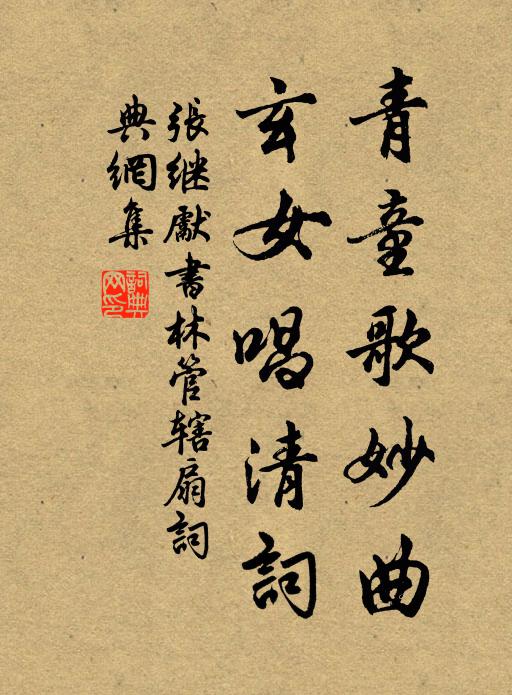 青童歌妙曲
玄女唱清詞
張继獻書林管辖扇詞
典網集
詞典
网印